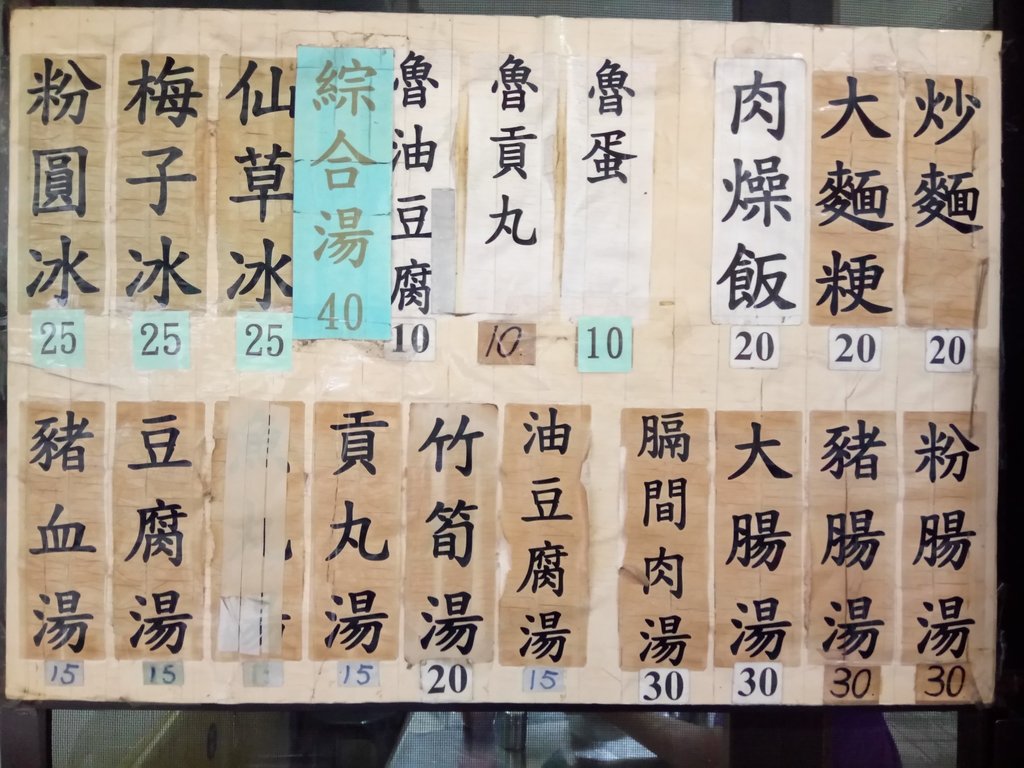 炒麵 20
大麵粳 20
肉燥飯 20
魯蛋 10
魯貢丸 10
魯油豆腐 10
綜合湯 40
仙草冰 25
梅子冰 25
粉圓冰 25
粉腸湯 30
豬腸湯 30
大腸湯 30
膈間肉湯 30
油豆腐湯 15
竹筍湯 20
貢丸湯 15
豆腐湯 15
豬血湯 15